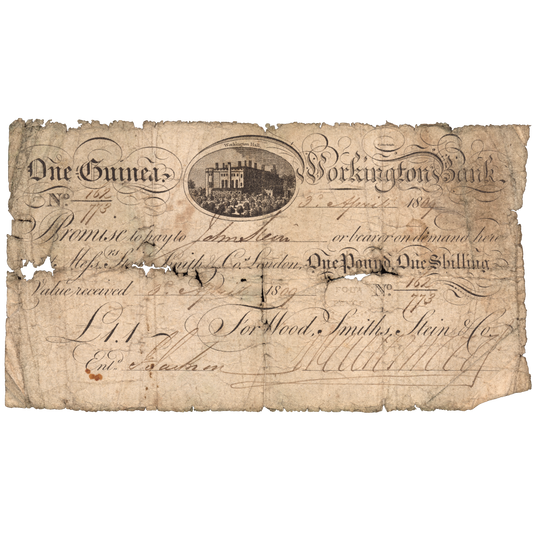 Workington Hall
One Guinea Workington Bank
No 162/773 2d April 1809
Promise to pay to John Stein or bearer on demand here
Messrs Smith & Co. London, One Pound One Shilling
Value received 2d April 1809 No 162/773
£1.1- For Wood, Smiths, Stein & Co.
Entd.